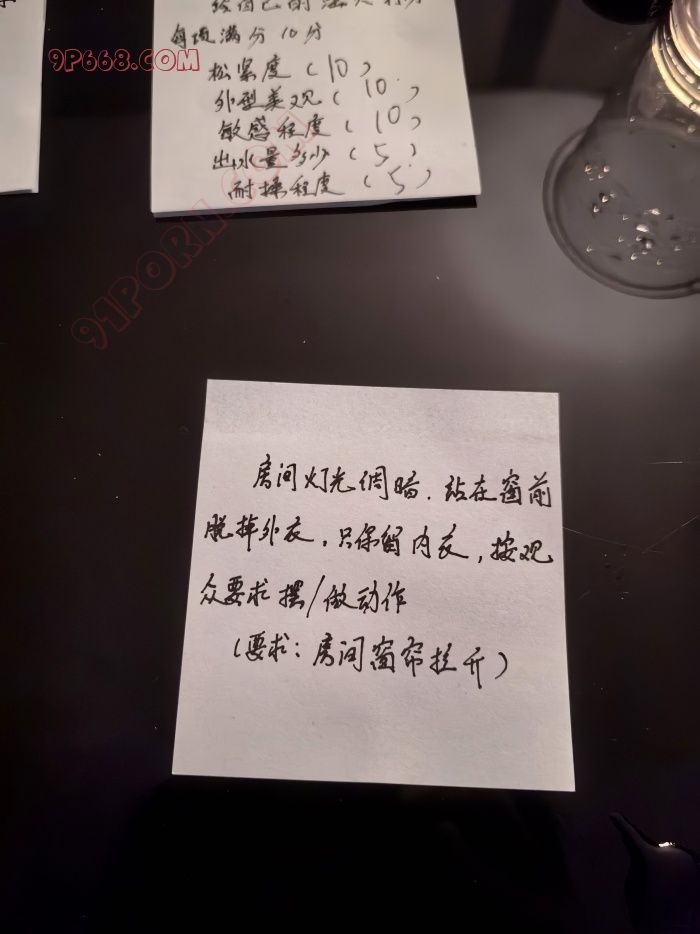 9P668.COM
给自己的
每项满分10分
松紧度（10）
外型美观（10）
敏感程度（10）
出水量多少（5）
耐操程度（5）
91PORN.COM
房间灯光调暗．站在窗前
脱掉外衣，只保留内衣，按观
众要求摆/做动作
（要求：房间窗帘拉开）